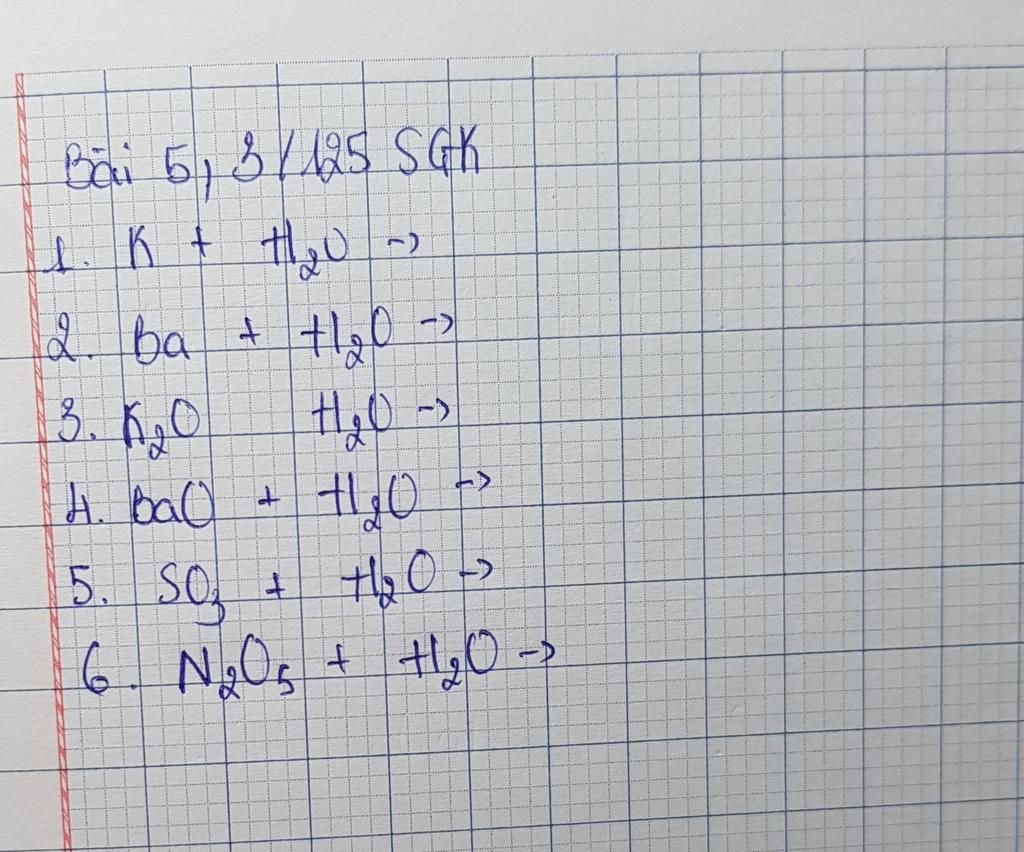 Bài 5, 3/125 SGK
1. K + H₂O ->
2. Ba + H₂O ->
3. K₂O H₂O ->
4. BaO + H₂O ->
5. SO₃ + H₂O ->
6. N₂O₅ + H₂O ->